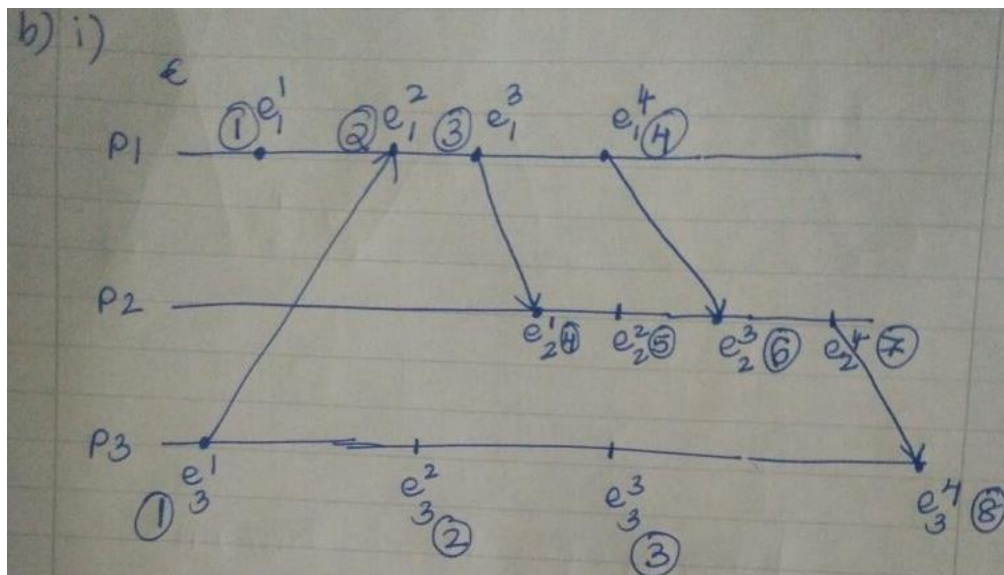 b) i)
① e₁¹ ② e₁² ③ e₁³ e₁⁴ ④
P1
P2
e₂¹ ④ e₂² ⑤ e₂³ ⑥ e₂⁴ ⑦
P3
e₃¹ e₃² e₃³ e₃⁴ ⑧
① ② ③